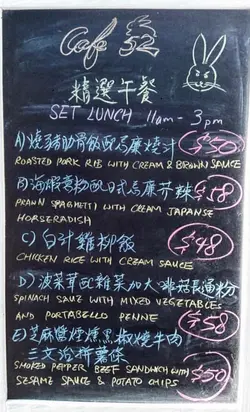 Cafe 52
精選午餐
SET LUNCH 11am - 3pm
A) 燒豬肋骨飯配忌廉燒汁 $50
ROASTED PORK RIB WITH CREAM & BROWN SAUCE
B) 海蝦意粉配日式忌廉芥辣 $58
PRAWN SPAGHETTI WITH CREAM JAPANSE
HORSERADISH
C) 白汁雞柳飯 $48
CHICKEN RICE WITH CREAM SAUCE
D) 菠菜茸配雜菜加大啡菇長通粉
SPINACH SAUZ WITH MIXED VEGETABLES
AND PORTABELLO PENNE $58
E) 芝麻醬煙燻黑椒燒牛肉
三文治拼薯條
SMOKED PEPPER BEEF SANDWICH WITH
SESAME SAUCE & POTATO CHIPS $50